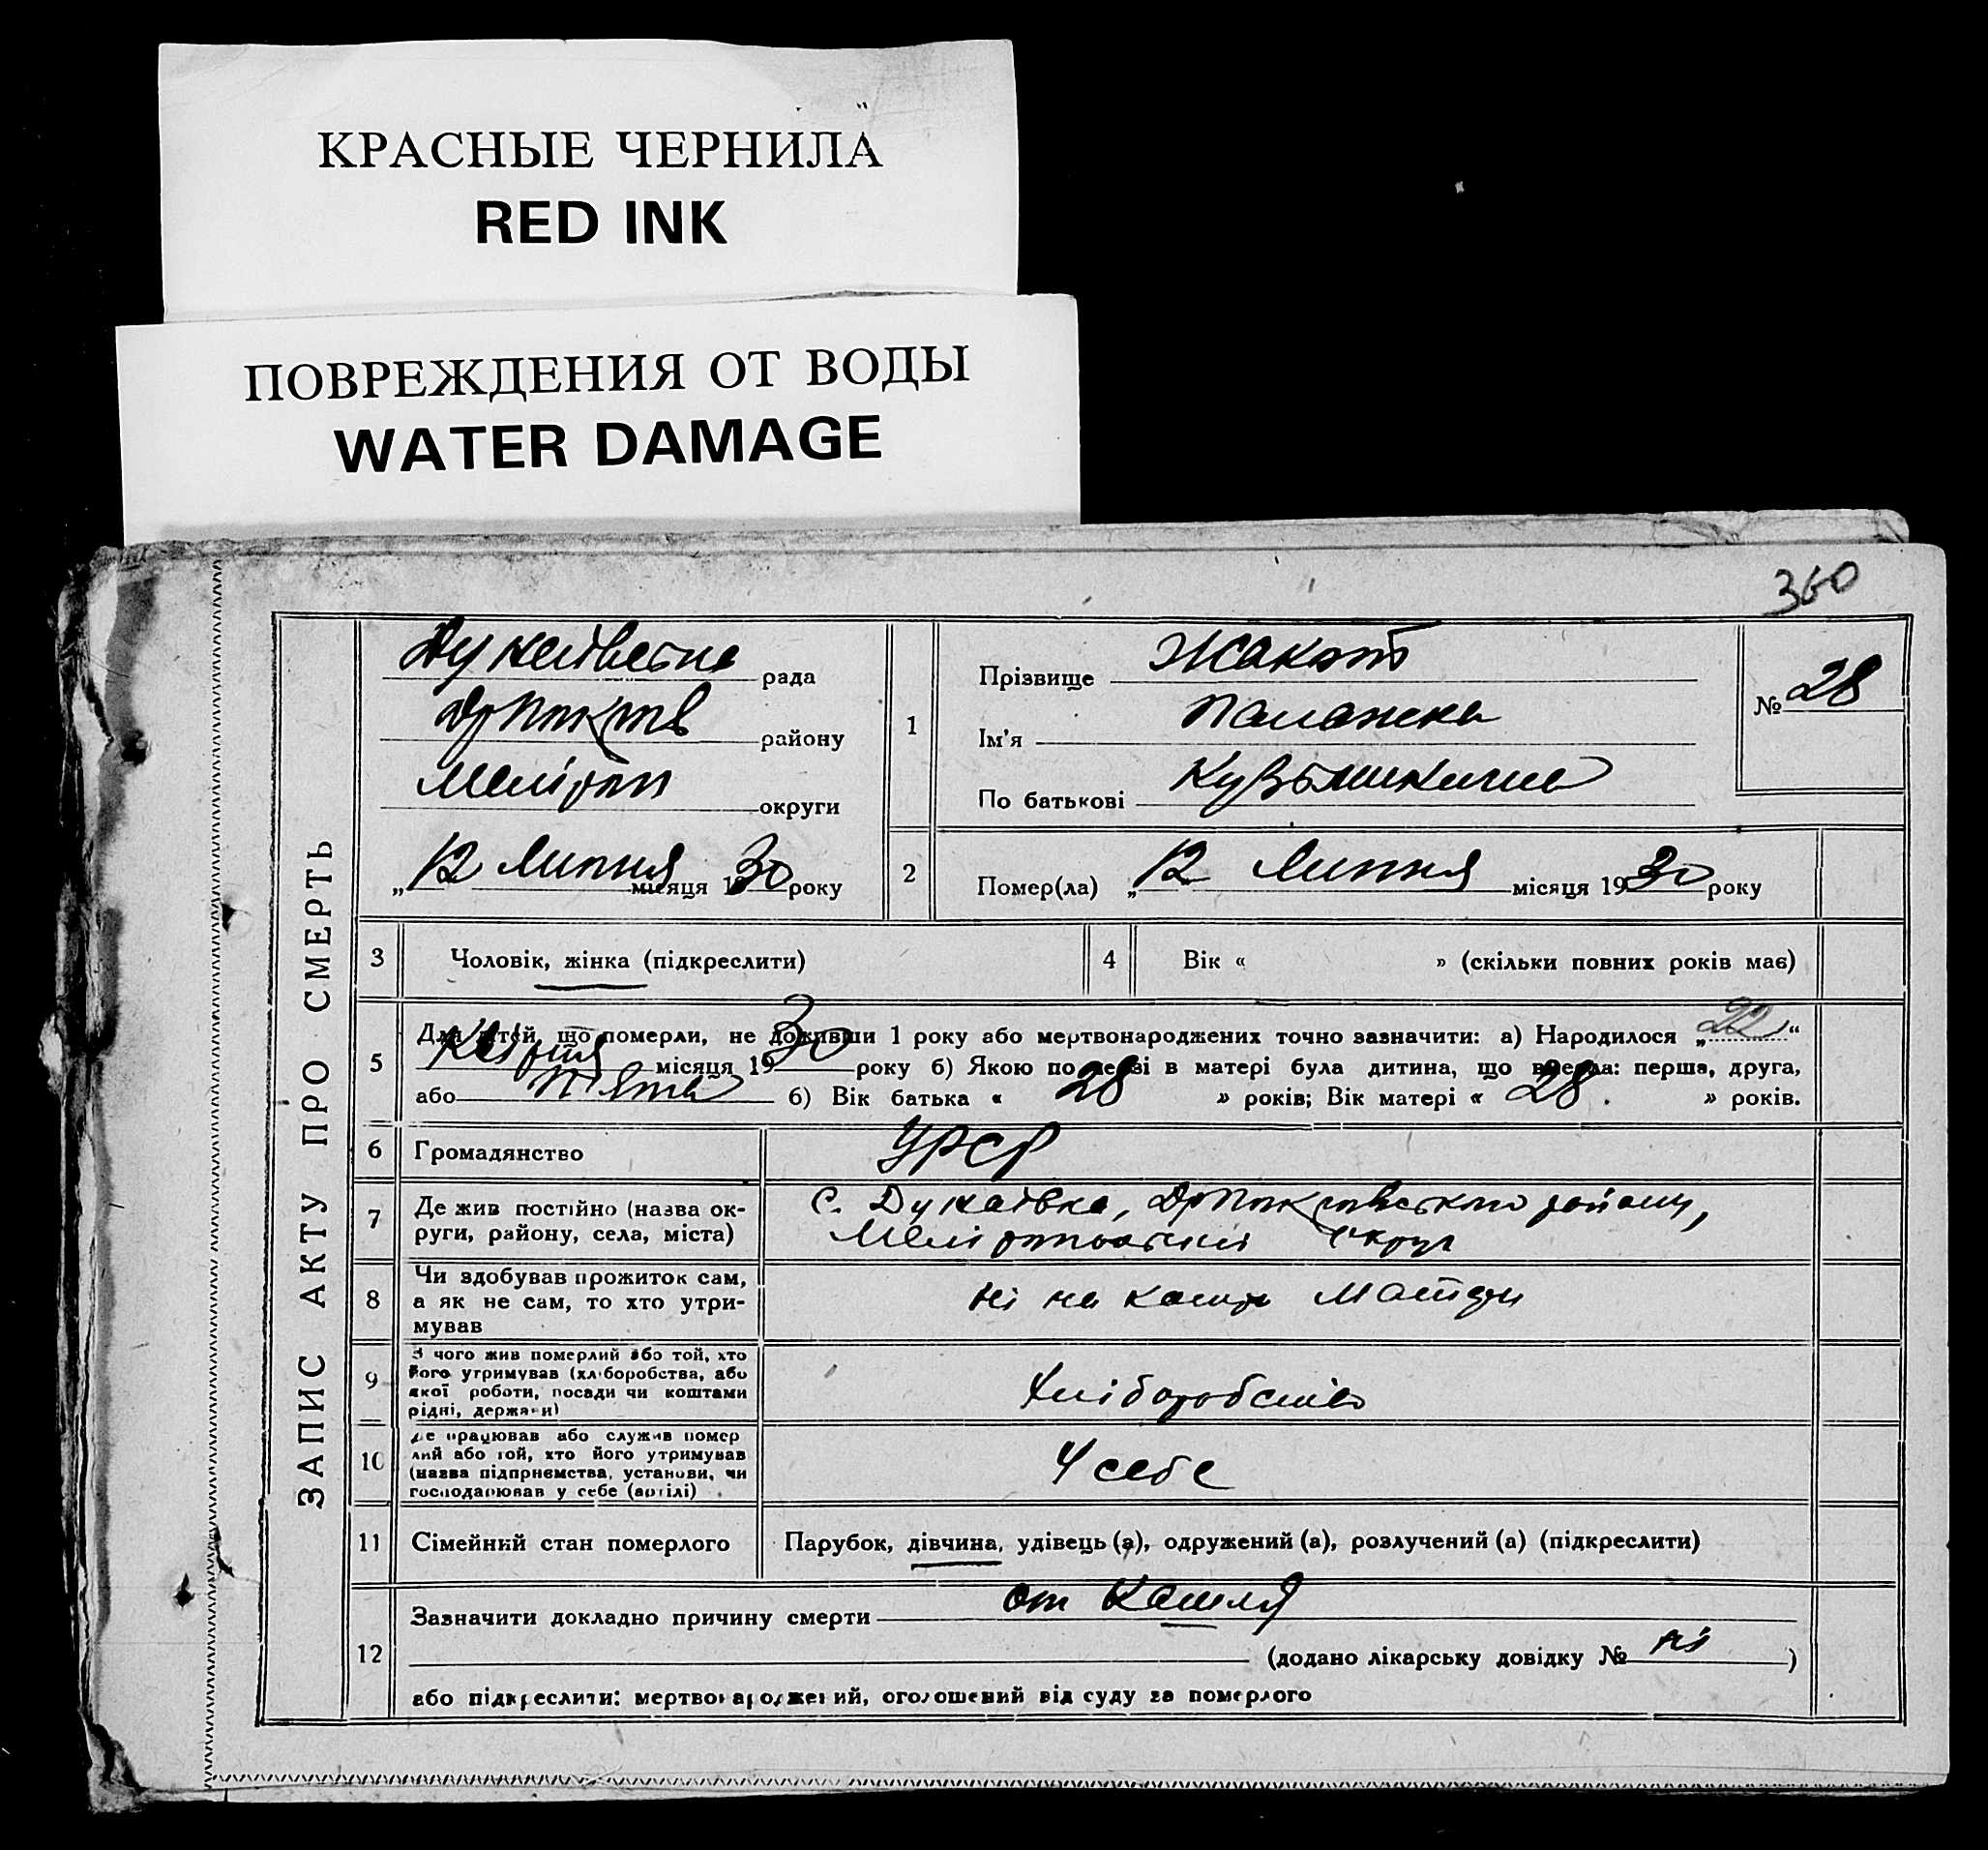 КРАСНЫЕ ЧЕРНИЛА
RED INK
ПОВРЕЖДЕНИЯ ОТ ВОДЫ
WATER DAMAGE
360
ЗАПИС АКТУ ПРО СМЕРТЬ
рада
району
округи
„12 Липня місяця 1930 року
1
Прізвище
Ім'я
По батькові
№ 28
2
Помер(ла) „12 Липня місяця 1930 року
3
Чоловік, жінка (підкреслити)
4
Вік « » (скільки повних років має)
5
Для дітей, що померли, не доживши 1 року або мертвонароджених точно зазначити: а) Народилося „22“
Квітня місяця 1930 року б) Якою по черзі в матері була дитина, що вмерла: перша, друга,
або п'ята б) Вік батька « 28 » років; Вік матері « 28. » років.
6
Громадянство
УРСР
7
Де жив постійно (назва ок-
руги, району, села, міста)
с. району,
округ
8
Чи здобував прожиток сам,
а як не сам, то хто утри-
мував
ні на
9
З чого жив померлий або той, хто
його утримував (хліборобства, або
якої роботи, посади чи коштами
рідні, держави)
Хліборобство
10
Де працював або служив помер
лий або той, хто його утримував
(назва підприємства, установи, чи
господарював у себе (артілі)
У себе
11
Сімейний стан померлого
Парубок, дівчина, удівець (а), одружений (а), розлучений (а) (підкреслити)
12
Зазначити докладно причину смерти от Кашля
(додано лікарську довідку № ні )
або підкреслити: мертвонароджений, оголошений від суду за померлого